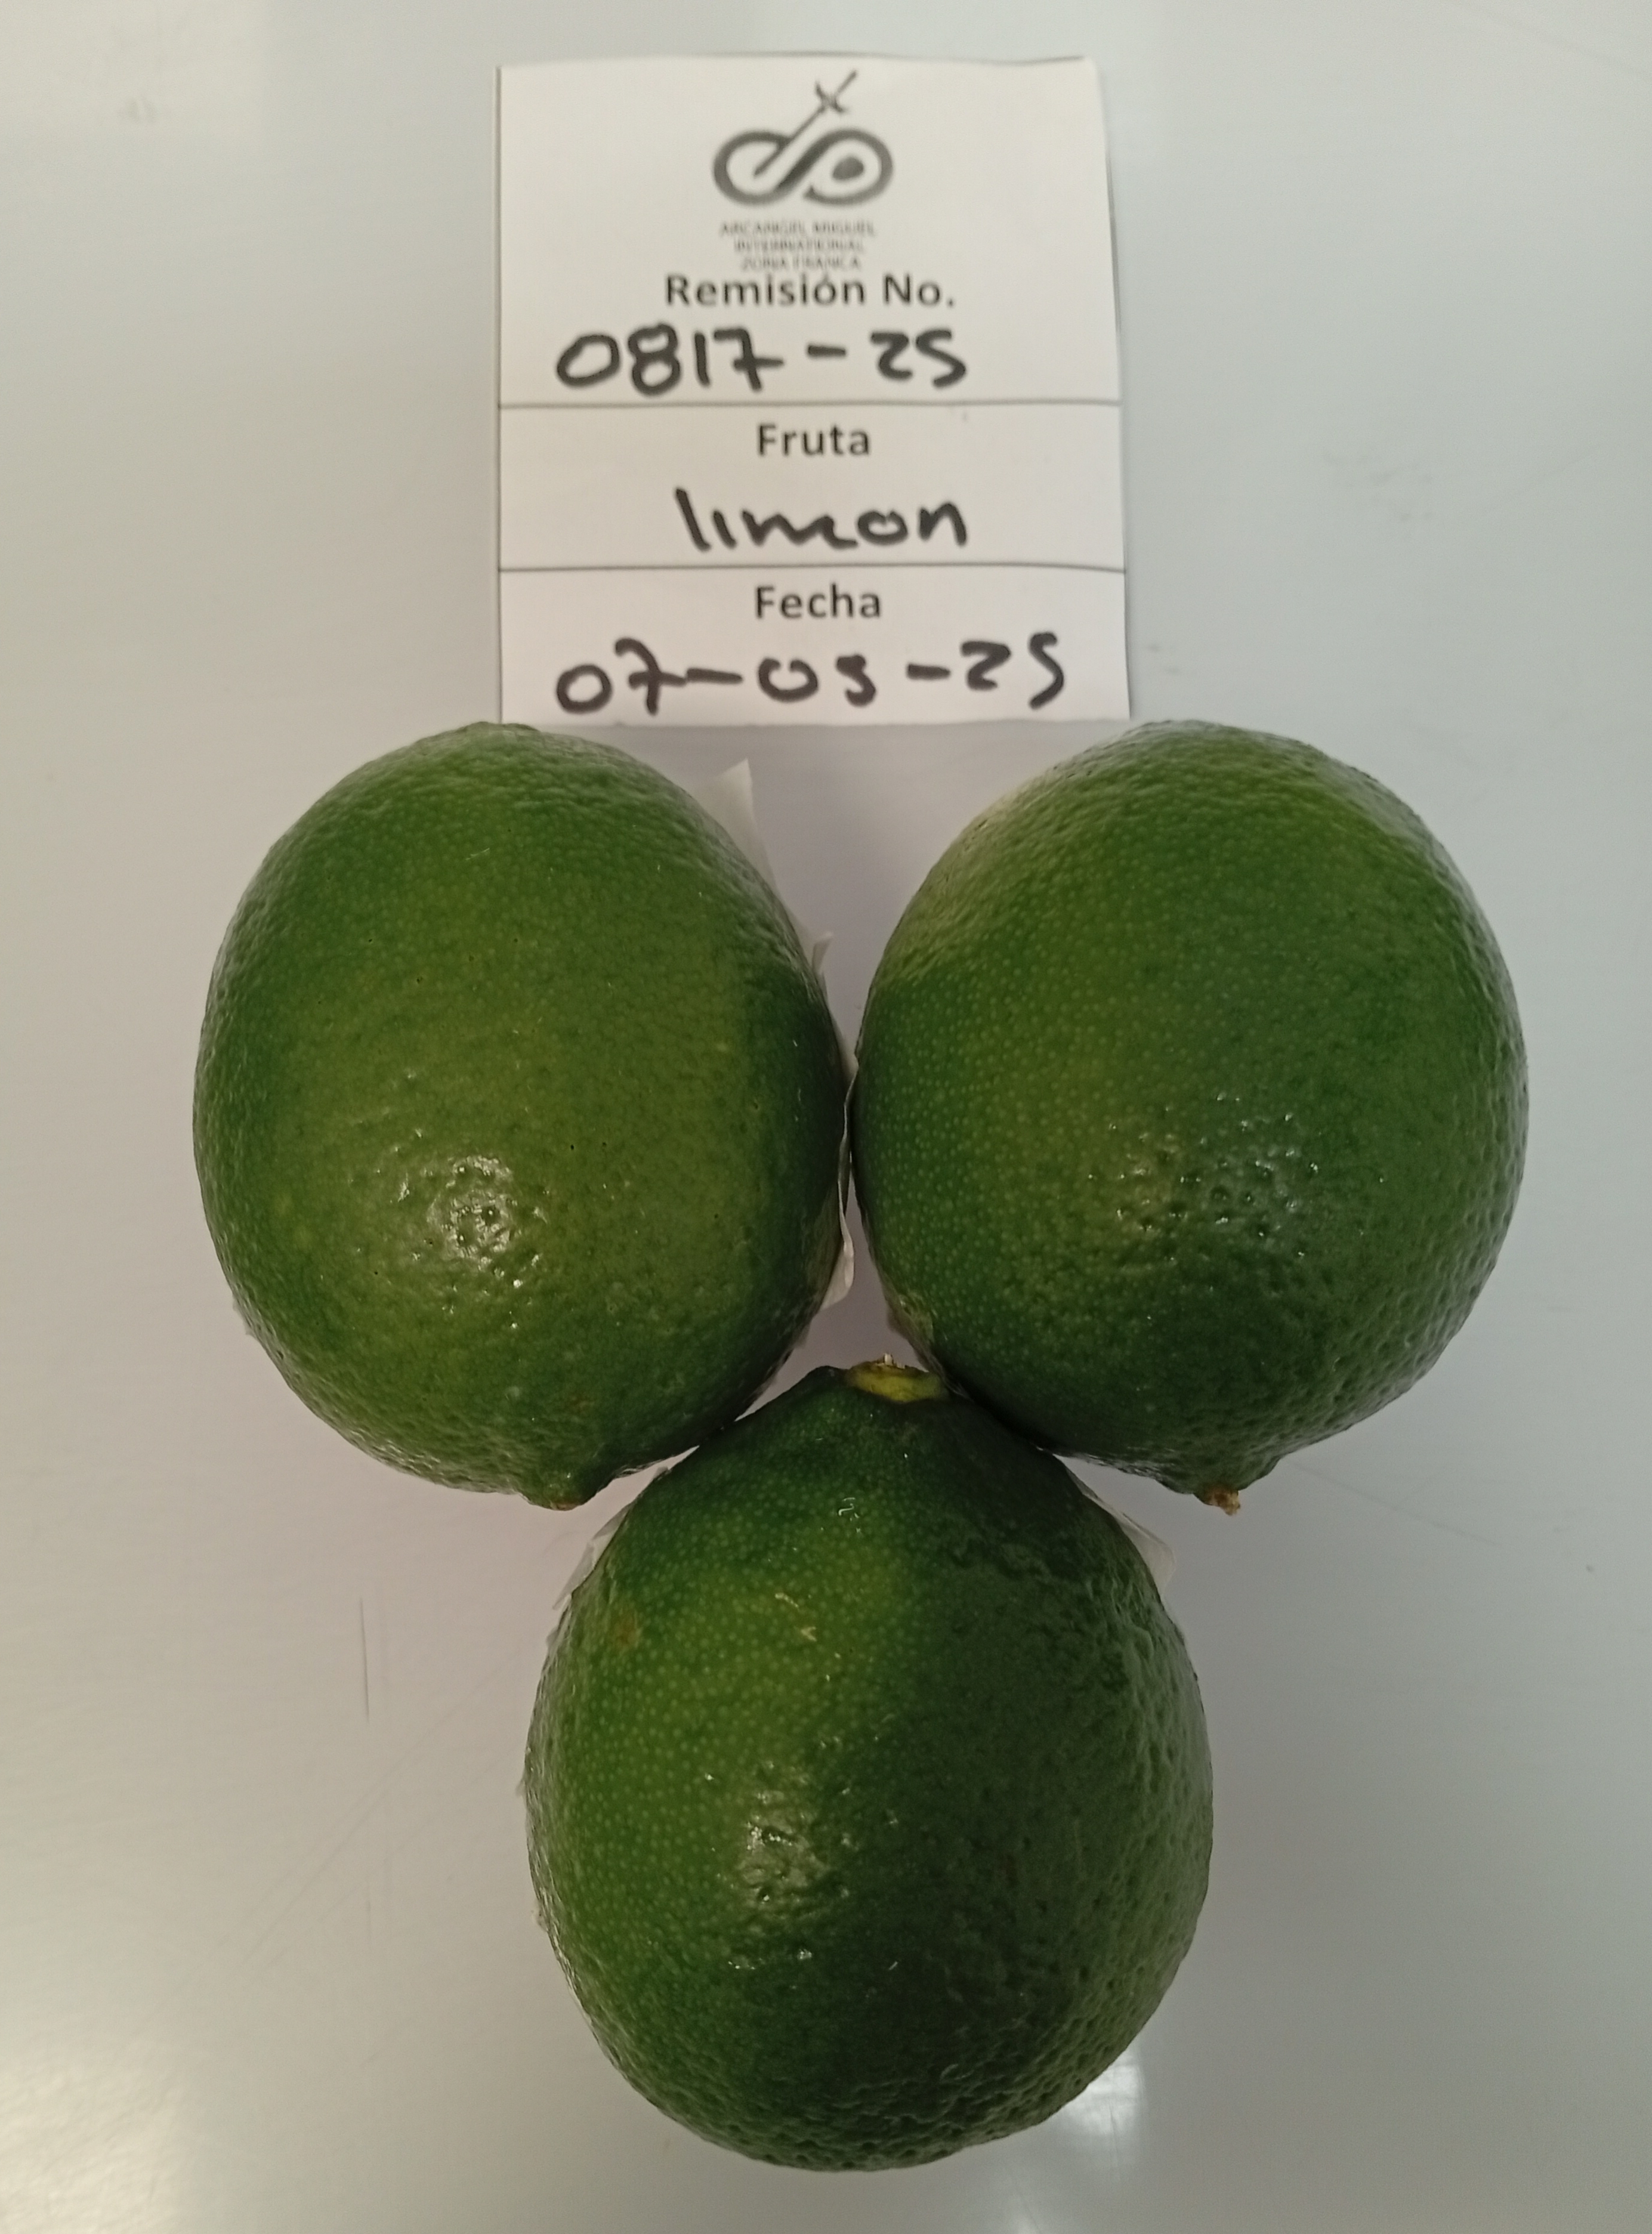 ARCANGEL MIGUEL
INTERNATIONAL
ZONA FRANCA
Remisión No.
0817-25
Fruta
limon
Fecha
07-05-25